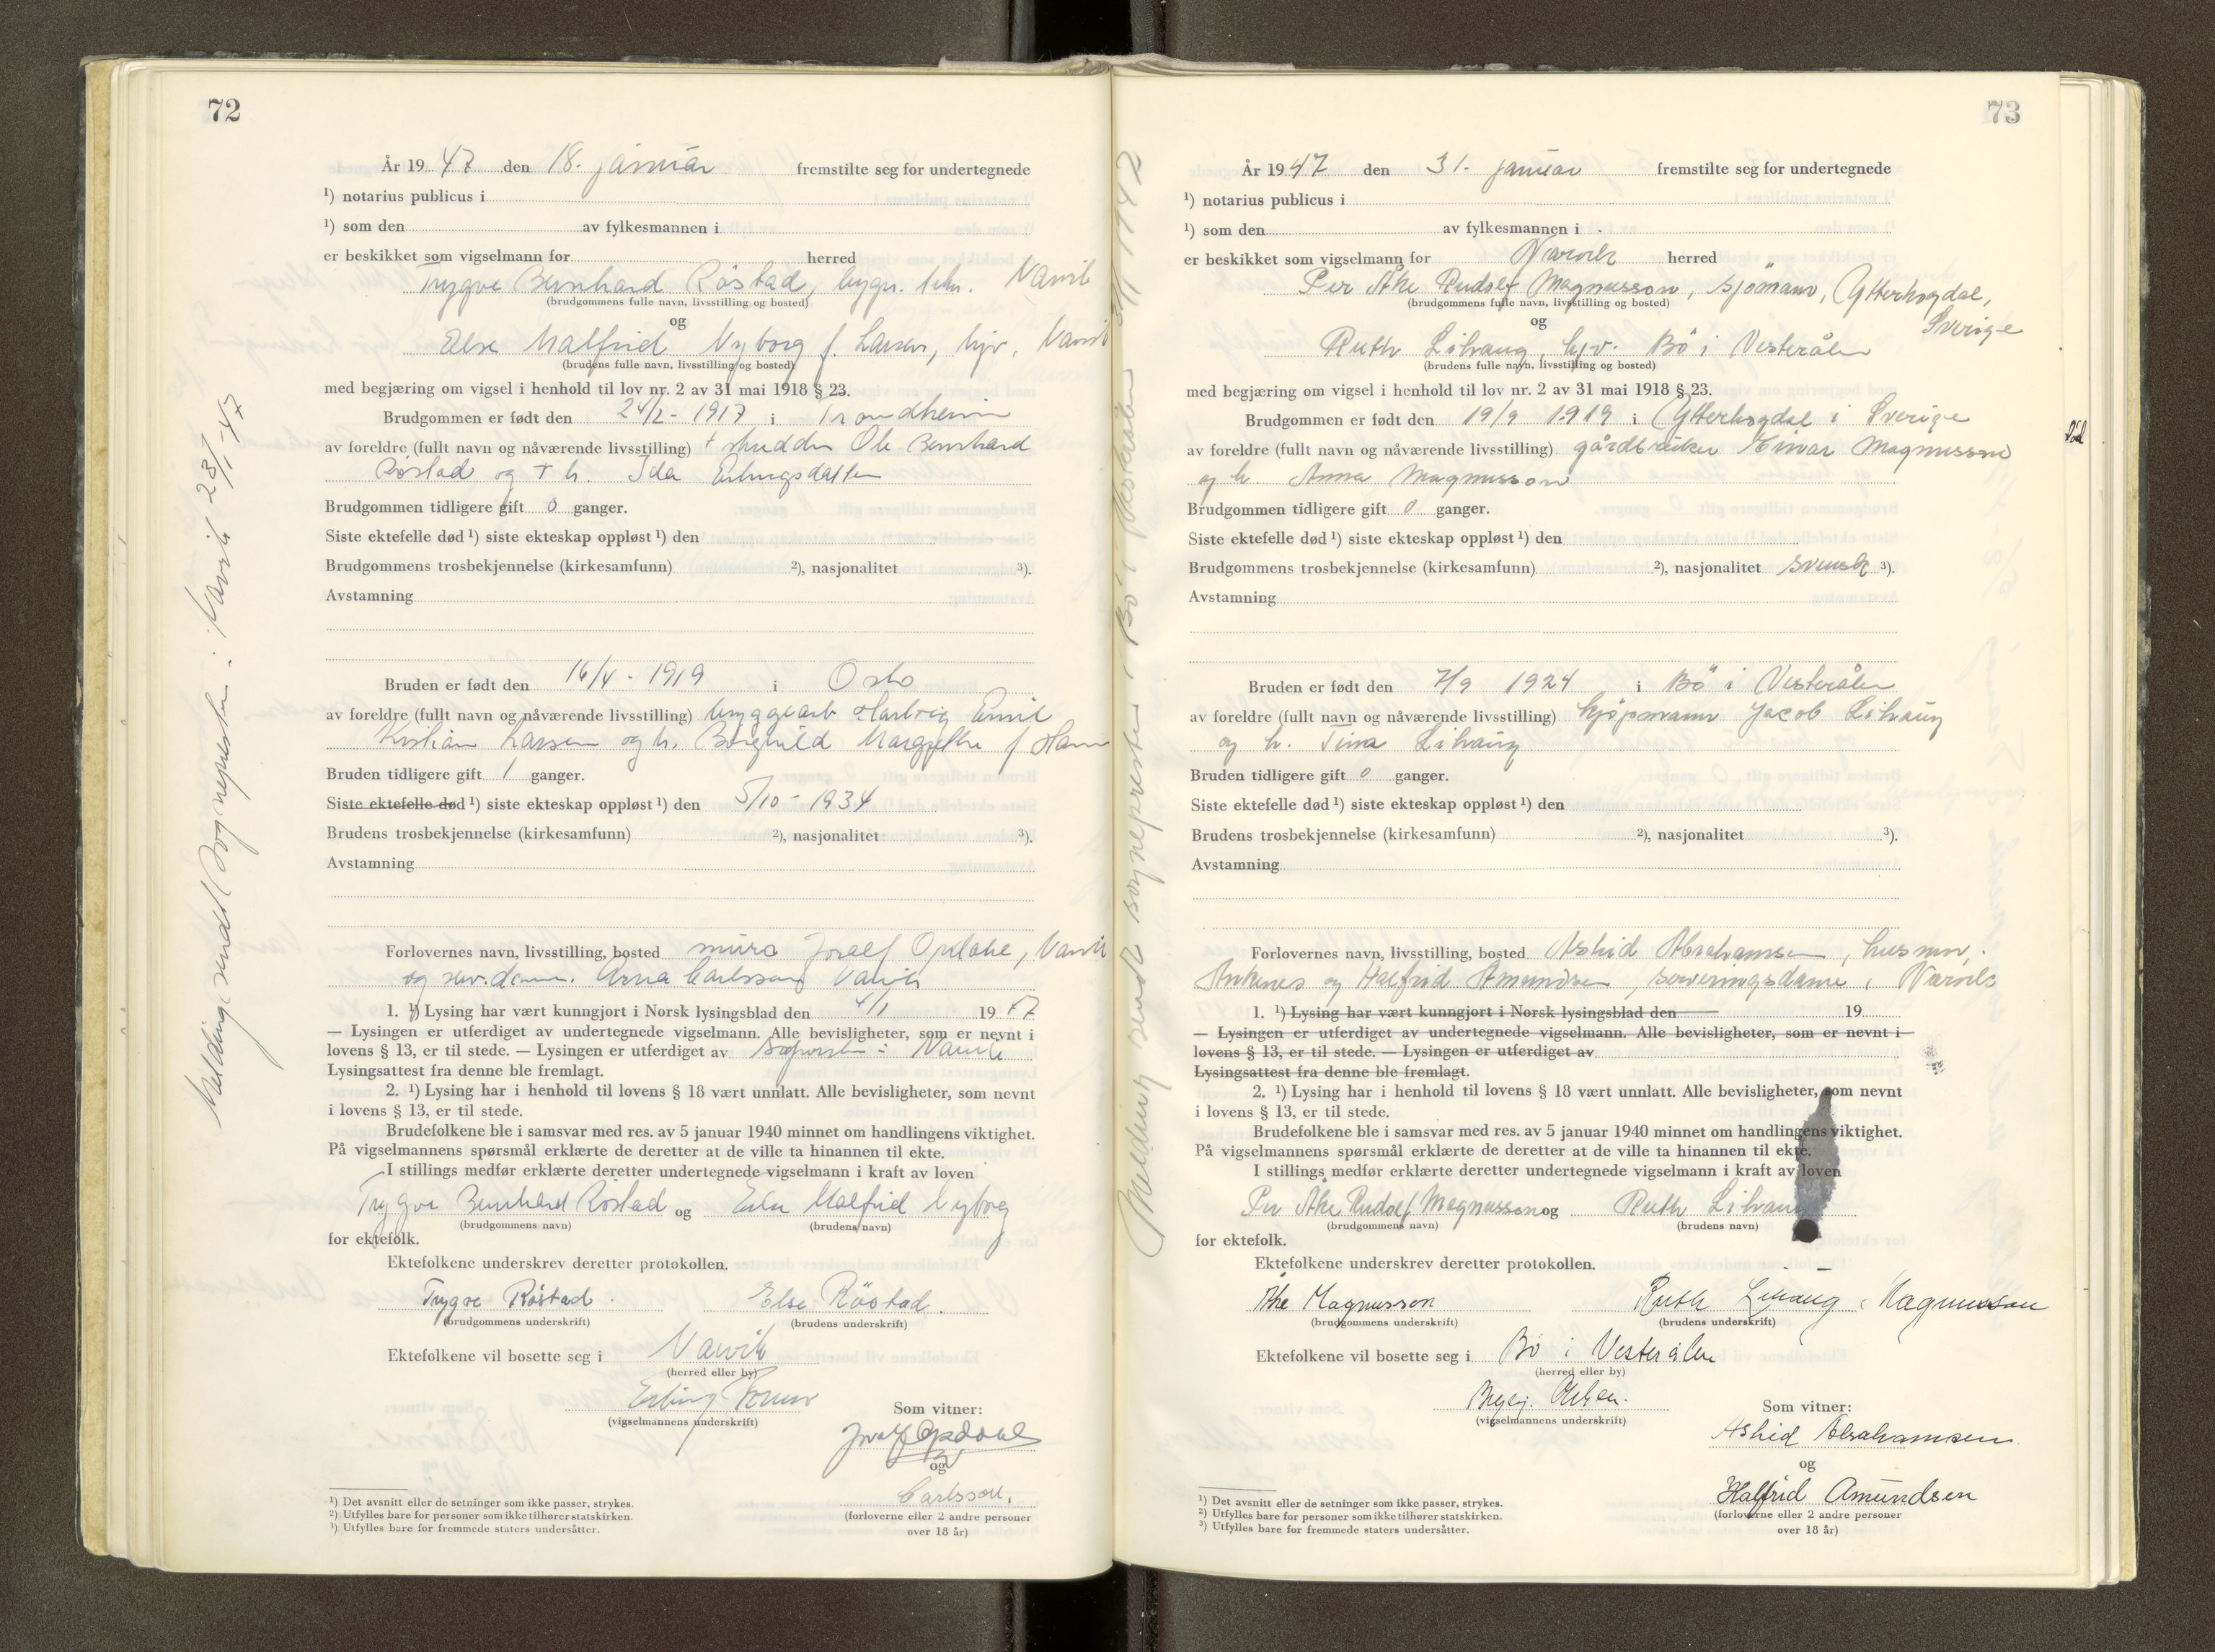 72
År 19 47 den 18. januar fremstilte seg for undertegnede
¹) notarius publicus i
¹) som den av fylkesmannen i
er beskikket som vigselmann for herred
Trygve Bernhard Röstad, bygn. Narvik
(brudgommens fulle navn, livsstilling og bosted)
og
Else Malfrid Nyborg f. Larsen, hjv, Narvik
(brudens fulle navn, livsstilling og bosted)
med begjæring om vigsel i henhold til lov nr. 2 av 31 mai 1918 § 23.
Brudgommen er født den 24/2 - 1917 i Trondheim
av foreldre (fullt navn og nåværende livsstilling) + Ole Bernhard
Röstad og + h. Ida
Brudgommen tidligere gift 0 ganger.
Siste ektefelle død ¹) siste ekteskap oppløst ¹) den
Brudgommens trosbekjennelse (kirkesamfunn) ²), nasjonalitet ³).
Avstamning
Bruden er født den 16/4 - 1919 i Oslo
av foreldre (fullt navn og nåværende livsstilling) bryggearb Hartvig Emil
Kristian Larsen og h. Borghild Margrethe f
Bruden tidligere gift 1 ganger.
Siste ektefelle død ¹) siste ekteskap oppløst ¹) den 5/10 - 1934
Brudens trosbekjennelse (kirkesamfunn) ²), nasjonalitet ³).
Avstamning
Forlovernes navn, livsstilling, bosted murer Joralf Opdahl, Narvik
og serv.dame. Carlsson Narvik
1. ¹) Lysing har vært kunngjort i Norsk lysingsblad den 4/1 19 47
— Lysingen er utferdiget av undertegnede vigselmann. Alle bevisligheter, som er nevnt i
lovens § 13, er til stede. — Lysingen er utferdiget av i Narvik
Lysingsattest fra denne ble fremlagt.
2. ¹) Lysing har i henhold til lovens § 18 vært unnlatt. Alle bevisligheter, som nevnt
i lovens § 13, er til stede.
Brudefolkene ble i samsvar med res. av 5 januar 1940 minnet om handlingens viktighet.
På vigselmannens spørsmål erklærte de deretter at de ville ta hinannen til ekte.
I stillings medfør erklærte deretter undertegnede vigselmann i kraft av loven
Trygve Bernhard Röstad og Else Malfrid Nyborg
(brudgommens navn) (brudens navn)
for ektefolk.
Ektefolkene underskrev deretter protokollen.
Trygve Röstad. Else Röstad.
(brudgommens underskrift) (brudens underskrift)
Ektefolkene vil bosette seg i Narvik
(herred eller by)
Erling
(vigselmannens underskrift)
Som vitner:
Opdahl
og
Carlsson.
(forloverne eller 2 andre personer
over 18 år)
¹) Det avsnitt eller de setninger som ikke passer, strykes.
²) Utfylles bare for personer som ikke tilhører statskirken.
³) Utfylles bare for fremmede staters undersåtter.
Melding sendt Sognepresten i Narvik 23/1-47
Melding sendt sognepresten i Bö i Vesterålen 31/1 1947
73
År 19 47 den 31. januar fremstilte seg for undertegnede
¹) notarius publicus i
¹) som den av fylkesmannen i
er beskikket som vigselmann for Narvik herred
Per Åke Rudolf Magnusson, sjömann, Ytterhogdal,
(brudgommens fulle navn, livsstilling og bosted)
Sverige
og
Ruth Lihaug, hjv. Bö i Vesterålen
(brudens fulle navn, livsstilling og bosted)
med begjæring om vigsel i henhold til lov nr. 2 av 31 mai 1918 § 23.
Brudgommen er født den 19/9 1919 i Ytterhogdal i Sverige
av foreldre (fullt navn og nåværende livsstilling) gårdbruker Einar Magnusson
og h. Anna Magnusson
Brudgommen tidligere gift 0 ganger.
Siste ektefelle død ¹) siste ekteskap oppløst ¹) den
Brudgommens trosbekjennelse (kirkesamfunn) ²), nasjonalitet svensk ³).
Avstamning
Bruden er født den 7/9 1924 i Bö i Vesterålen
av foreldre (fullt navn og nåværende livsstilling) kjöpmann Jacob Lihaug
og h. Tina Lihaug
Bruden tidligere gift 0 ganger.
Siste ektefelle død ¹) siste ekteskap oppløst ¹) den
Brudens trosbekjennelse (kirkesamfunn) ²), nasjonalitet ³).
Avstamning
Forlovernes navn, livsstilling, bosted Astrid Abrahamsen, husmor,
Ankenes og Halfrid Amundsen, serveringsdame, Narvik
1. ¹) Lysing har vært kunngjort i Norsk lysingsblad den 19
— Lysingen er utferdiget av undertegnede vigselmann. Alle bevisligheter, som er nevnt i
lovens § 13, er til stede. — Lysingen er utferdiget av
Lysingsattest fra denne ble fremlagt.
2. ¹) Lysing har i henhold til lovens § 18 vært unnlatt. Alle bevisligheter, som nevnt
i lovens § 13, er til stede.
Brudefolkene ble i samsvar med res. av 5 januar 1940 minnet om handlingens viktighet.
På vigselmannens spørsmål erklærte de deretter at de ville ta hinannen til ekte.
I stillings medfør erklærte deretter undertegnede vigselmann i kraft av loven
Per Åke Rudolf Magnusson og Ruth Lihaug
(brudgommens navn) (brudens navn)
for ektefolk.
Ektefolkene underskrev deretter protokollen.
Åke Magnusson Ruth Lihaug Magnusson
(brudgommens underskrift) (brudens underskrift)
Ektefolkene vil bosette seg i Bö i Vesterålen
(herred eller by)
(vigselmannens underskrift)
Som vitner:
Astrid Abrahamsen
og
Halfrid Amundsen
(forloverne eller 2 andre personer
over 18 år)
¹) Det avsnitt eller de setninger som ikke passer, strykes.
²) Utfylles bare for personer som ikke tilhører statskirken.
³) Utfylles bare for fremmede staters undersåtter.